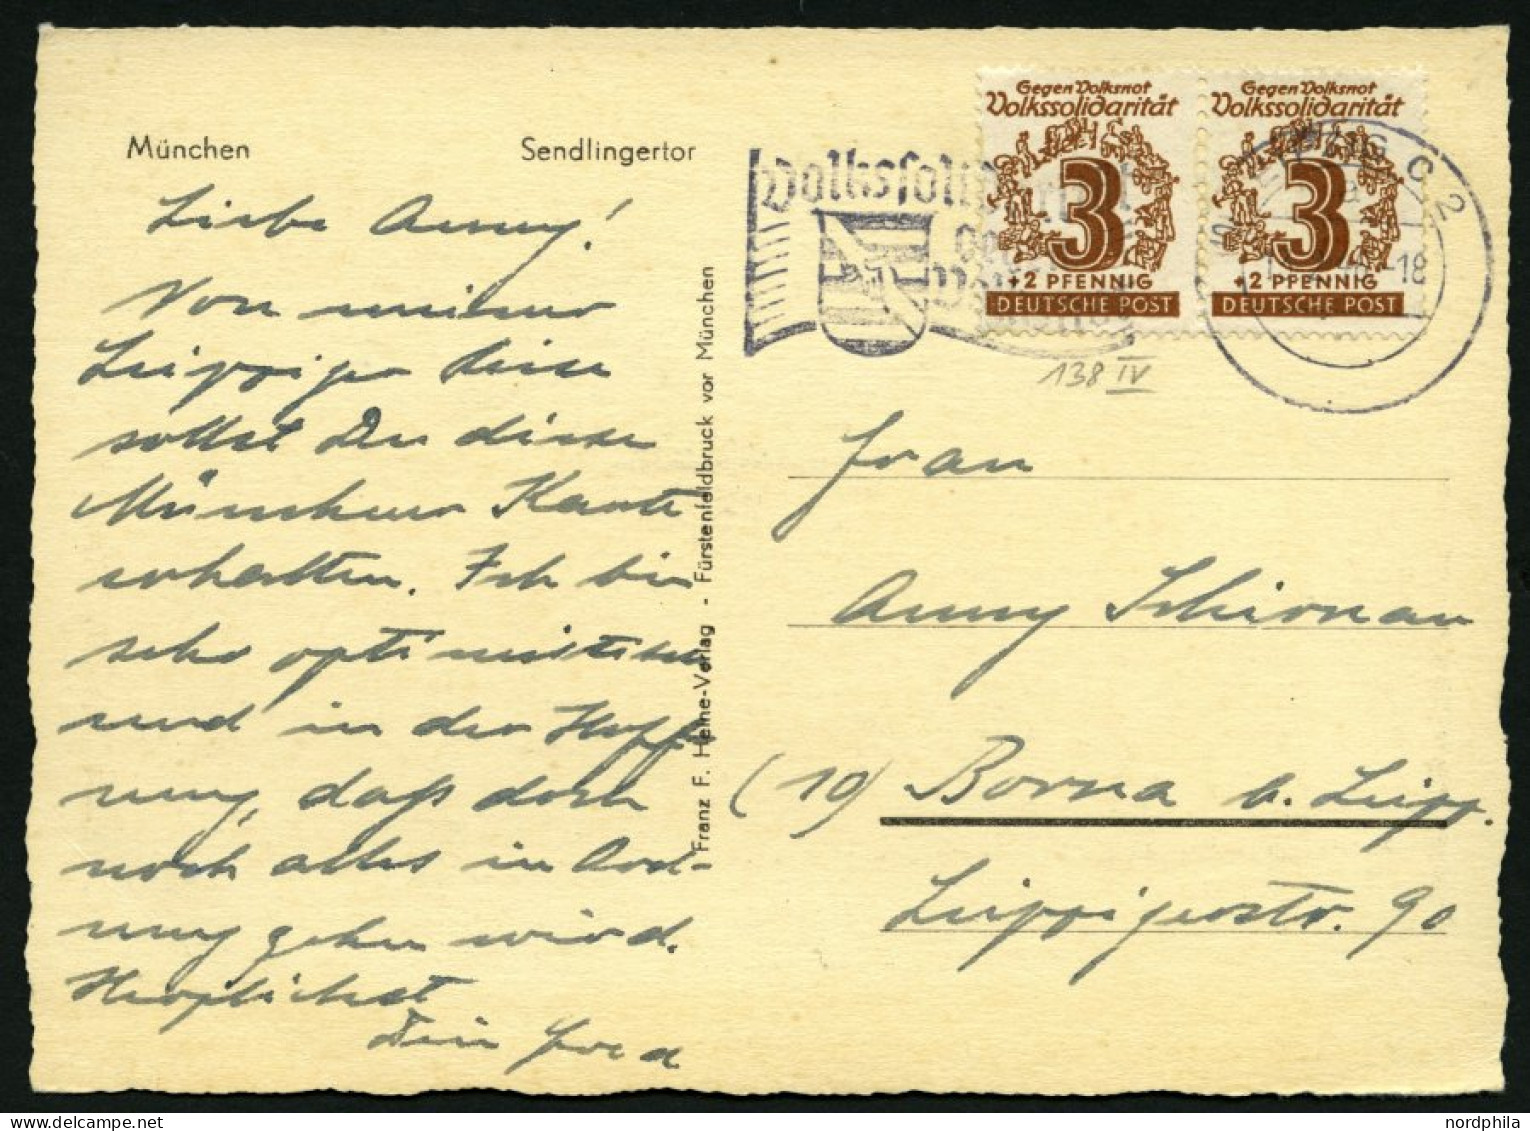 München Sendlingertor
Liebe Anny!
Von meiner
Leipziger Reise
sollst Du diese
Münchner Karte
erhalten. Ich bin
sehr optimistisch
und in der Hoff-
nung, daß doch
noch alles in Ord-
nung gehen wird.
Herzlichst
Dein Fred
Franz F. Heine-Verlag - Fürstenfeldbruck vor München
Gegen Volksnot
Volkssolidarität
3
+2 PFENNIG
DEUTSCHE POST
Gegen Volksnot
Volkssolidarität
3
+2 PFENNIG
DEUTSCHE POST
C 2
-18
138 IV
Frau
Anny Schirnau
(10) Borna b. Leipz.
Leipzigerstr. 90
nordphila